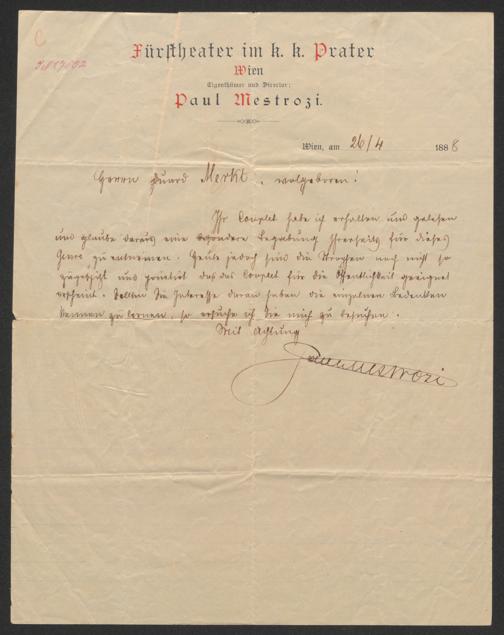 C
Fürsttheater im k. k. Prater
Wien
Eigenthümer und Director:
Paul Mestrozi.
Wien, am 26/4 1888
Herrn Eduard Merkt, wolgeboren!
Ihr Couplet habe ich erhalten und gelesen
und glaube daraus eine besondere Begabung Ihrerseits für dieses
Genre zu entnehmen. Heute jedoch sind die Strophen noch nicht so
zugespitzt und pointirt daß das Couplet für die Öffentlichkeit geeignet
erscheint. Sollten Sie Interesse daran haben die einzelnen Bedenken
kennen zu lernen, so ersuche ich Sie mich zu besuchen.
Mit Achtung
Paul Mestrozi